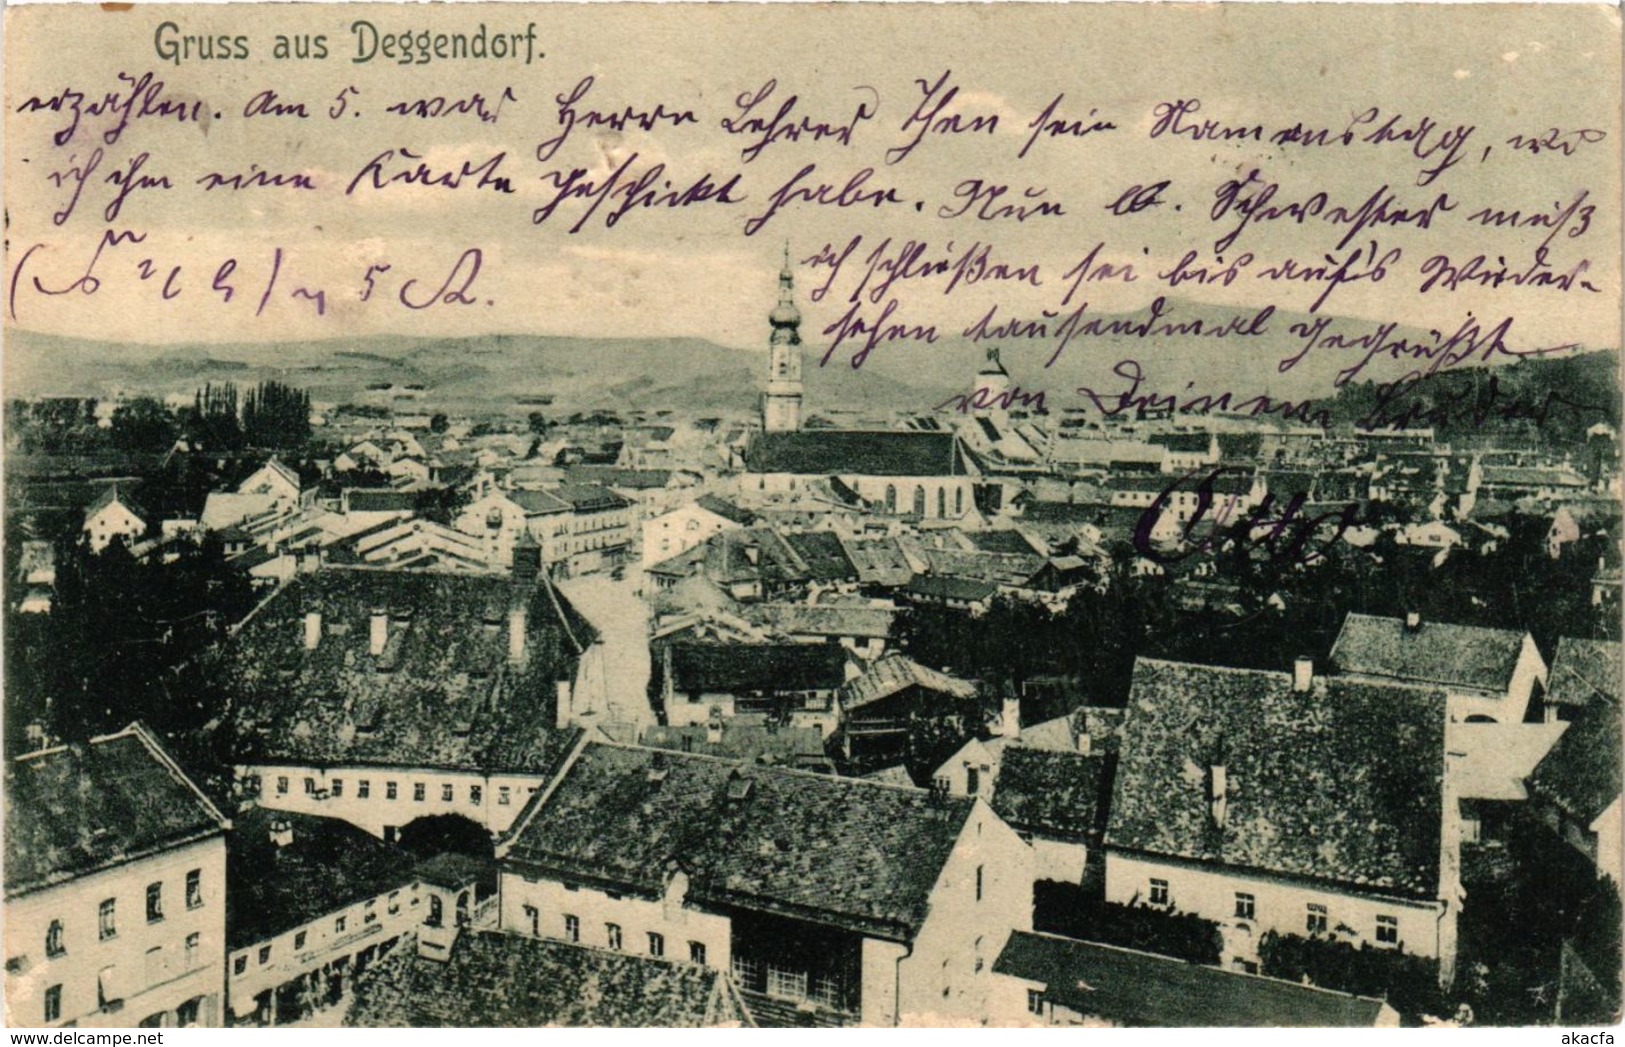 Gruss aus Deggendorf.
erzählen. Am 5. war Herrn Lehrer Then sein Namenstag, wo
ich ihm eine Karte geschickt habe. Nun lb. Schwester muß
ich schließen sei bis auf's Wieder-
sehen tausendmal gegrüßt
von Deinem Bruder
Otto
akacfa
delcampe.net